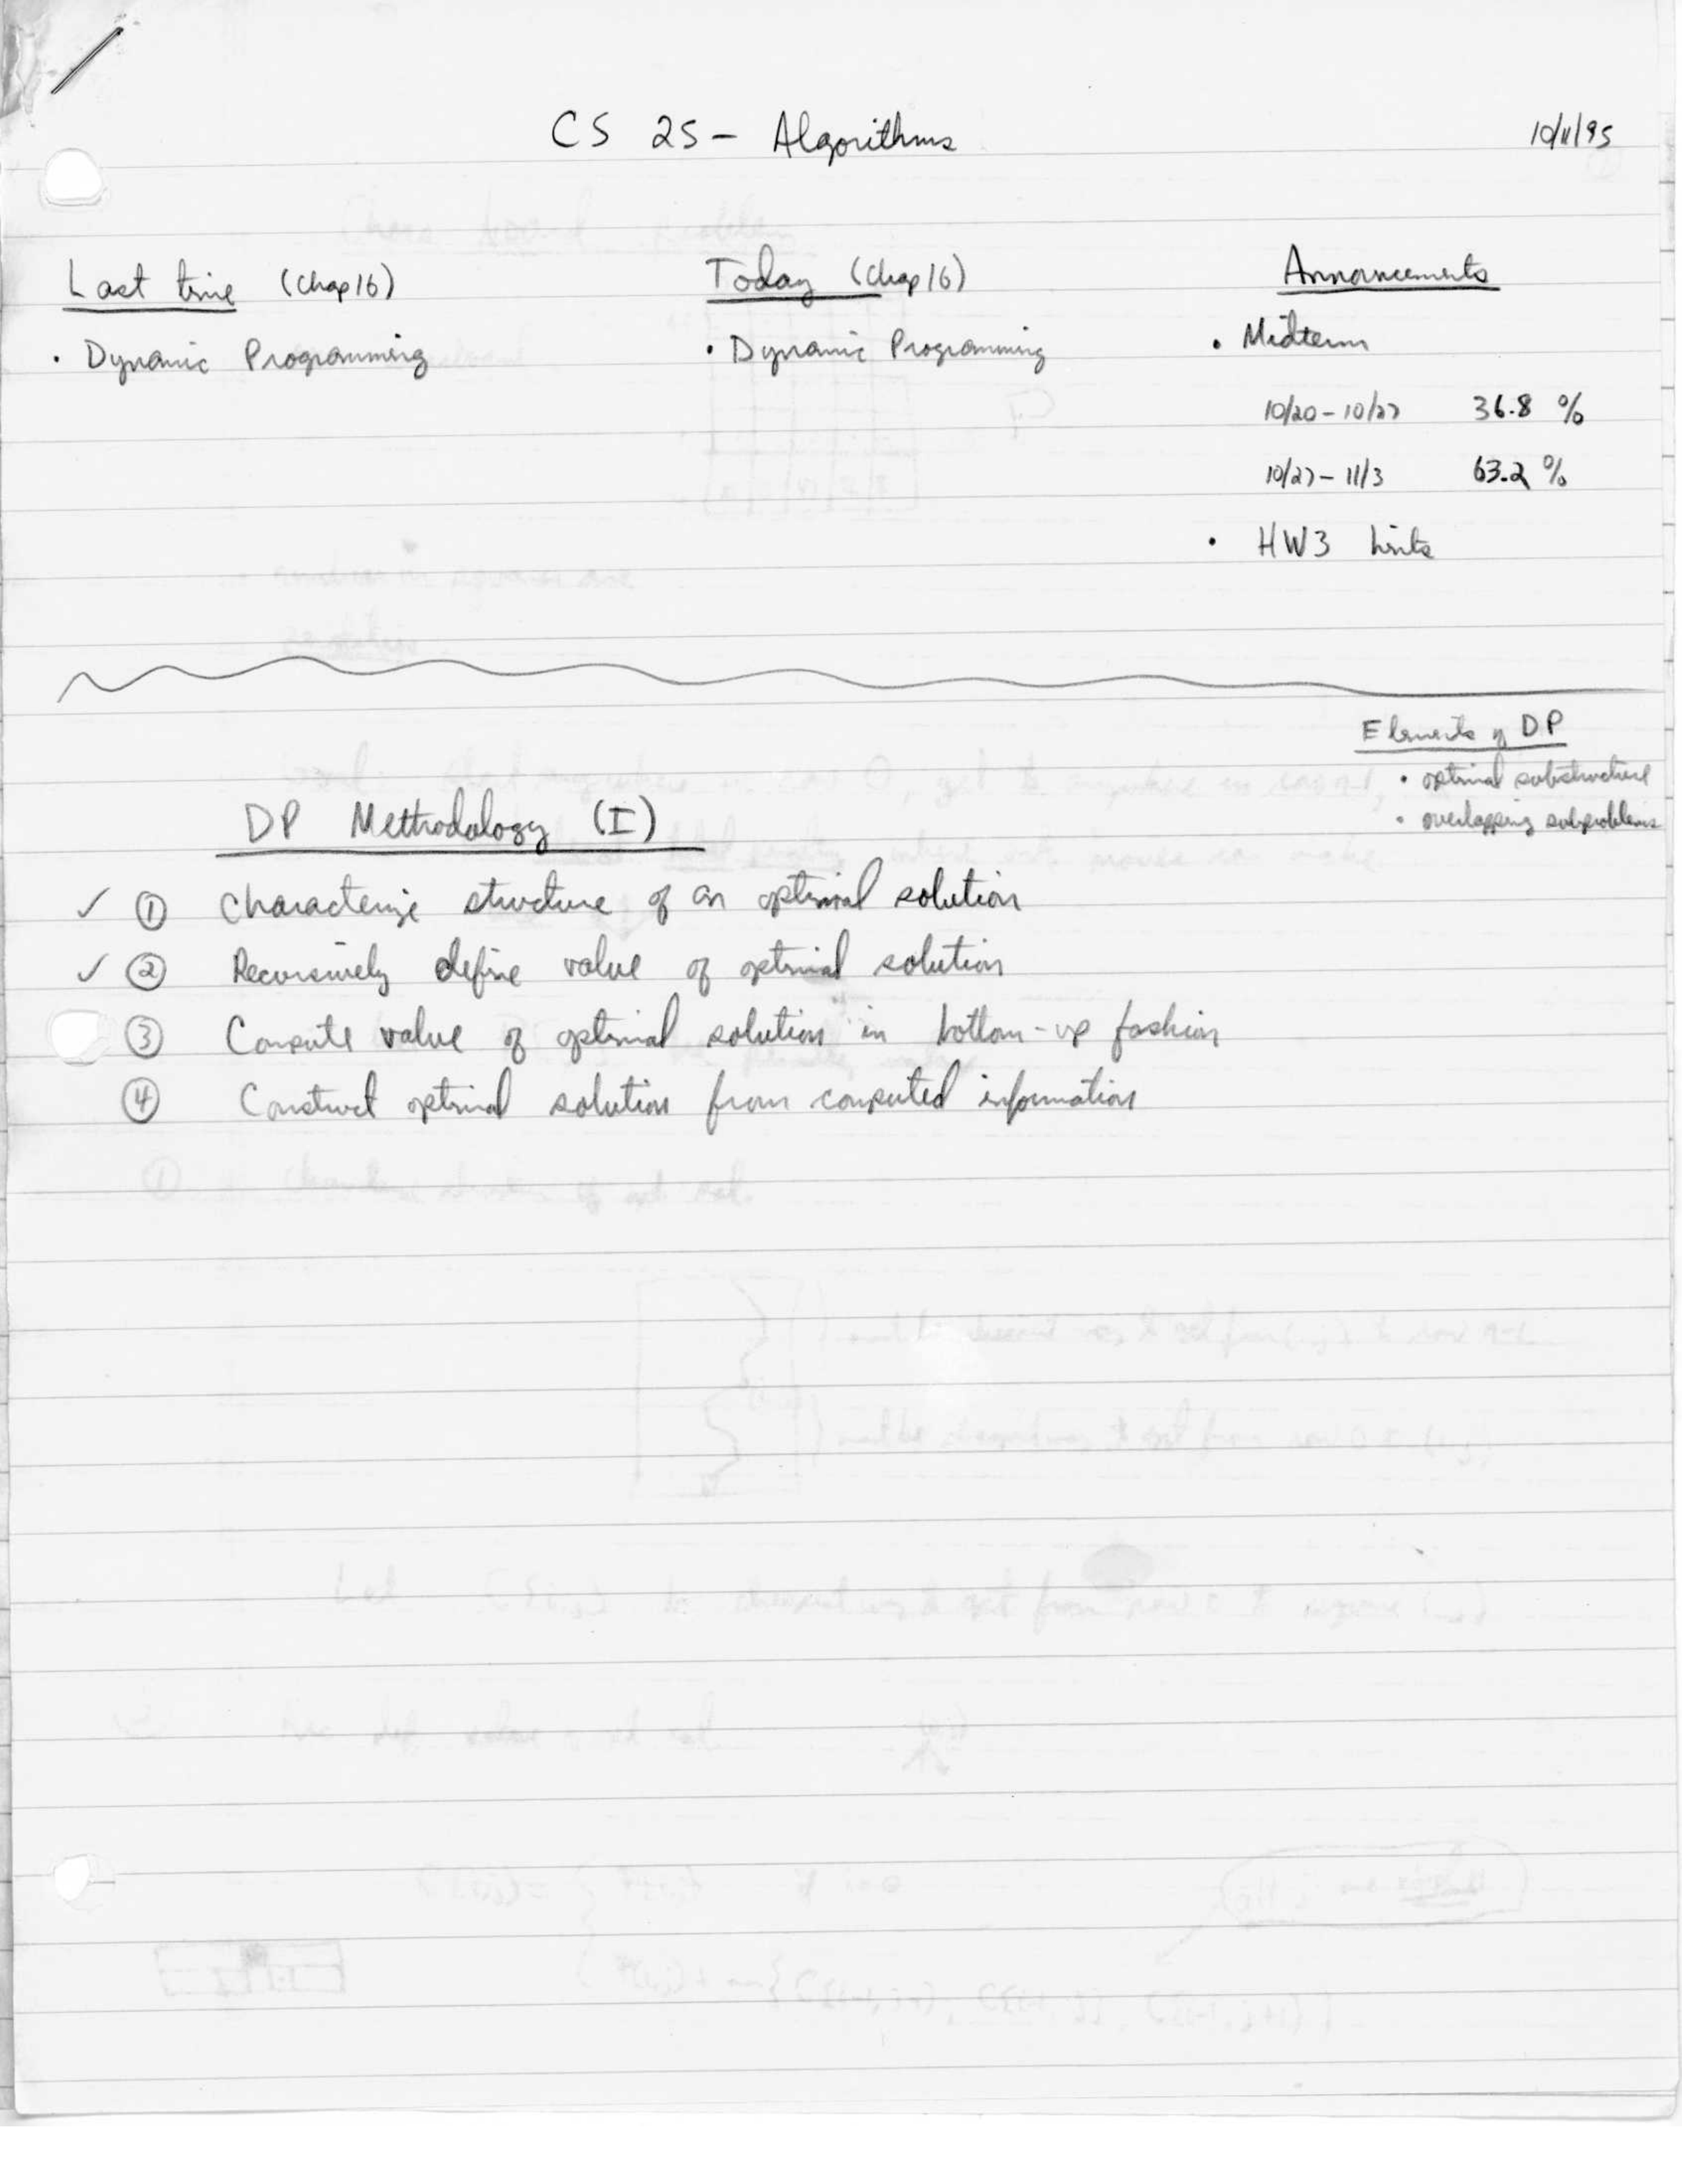 CS 25 - Algorithms 10/11/95
Last time (Chap 16)
• Dynamic Programming
Today (Chap 16)
• Dynamic Programming
Announcements
• Midterm
10/20 - 10/27 36.8 %
10/27 - 11/3 63.2 %
• HW3 hints
Elements of DP
• optimal substructure
• overlapping subproblems
DP Methodology (I)
✓ ① Characterize structure of an optimal solution
✓ ② Recursively define value of optimal solution
③ Compute value of optimal solution in bottom-up fashion
④ Construct optimal solution from computed information